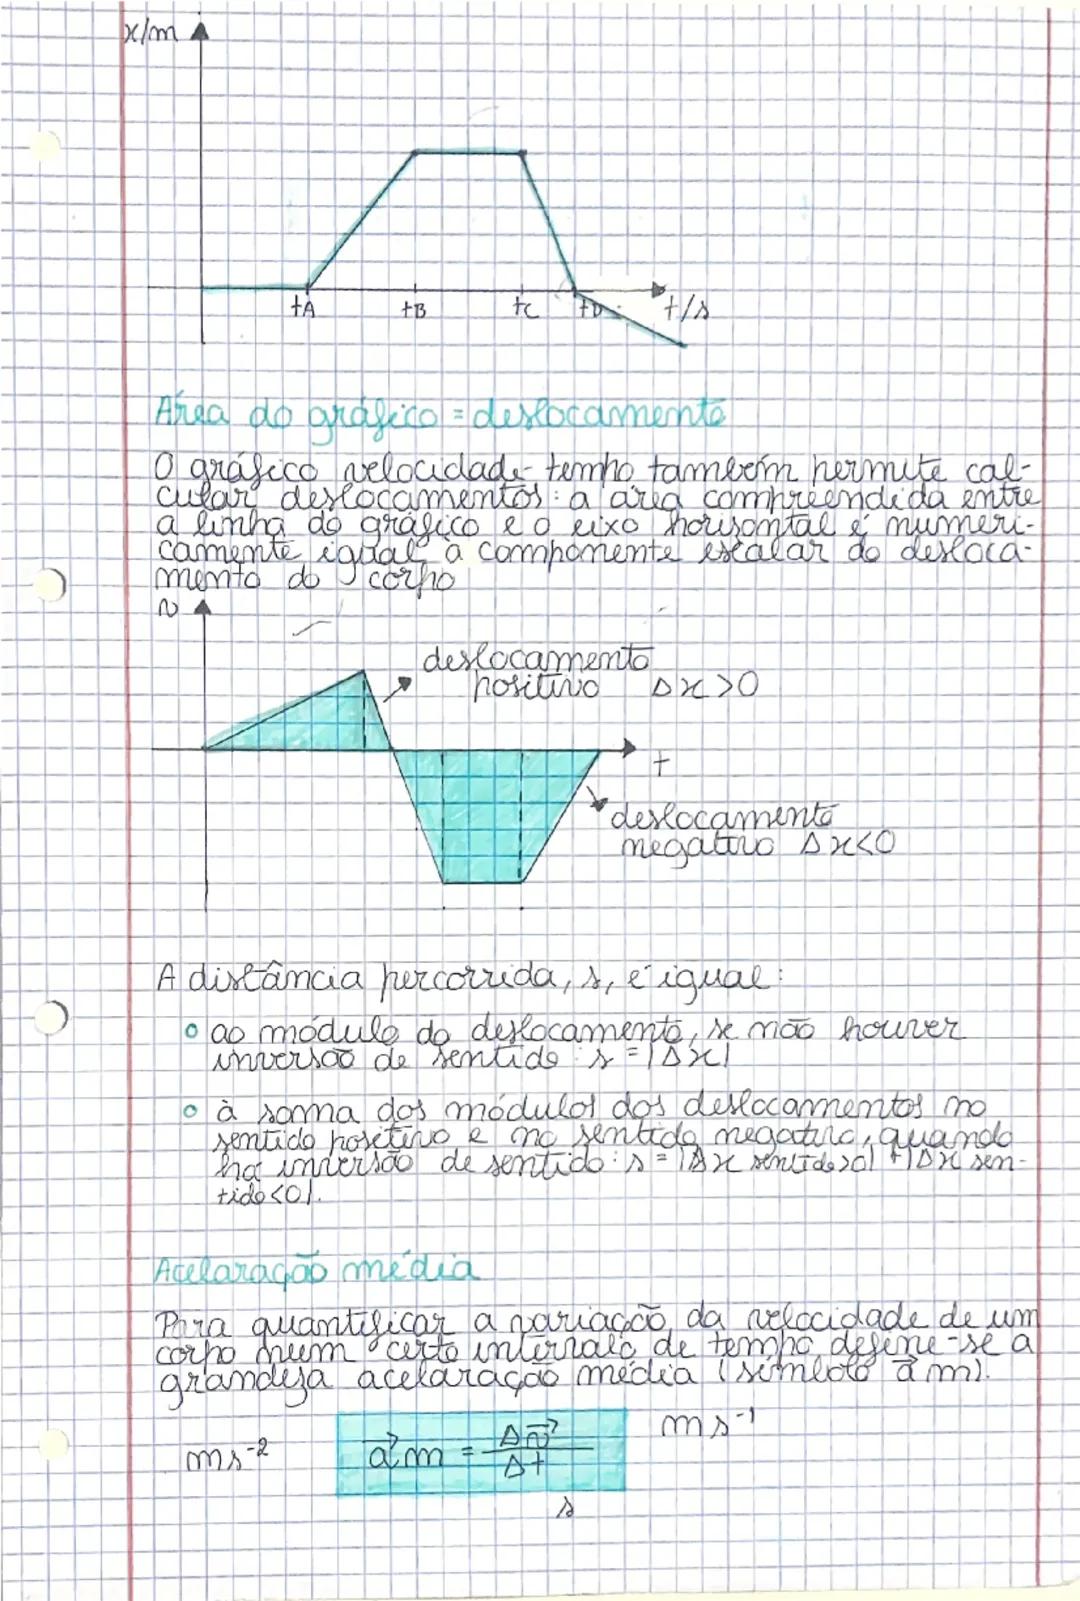 x/m
tA tB tC tD t/s
Área do gráfico = deslocamento
O gráfico velocidade-tempo também permite cal-
cular deslocamentos: a área compreendida entre
a linha do gráfico e o eixo horisontal é numeri-
camente igual à componente escalar do desloca-
mento do corpo
v
deslocamento
positivo Δx>0
t
deslocamento
negativo Δx<0
A distância percorrida, s, é igual:
ao módulo do deslocamento, se não houver
inversão de sentido: s = |Δx|
à soma dos módulos dos deslocamentos no
sentido positivo e no sentido negativo, quando
há inversão de sentido: s = |Δx sentido>0| + |Δx sen-
tido<0|.
Acelaração média
Para quantificar a variação da velocidade de um
corpo num certo intervalo de tempo define-se a
grandeza acelaração média (símbolo a⃗m).
ms⁻¹
ms⁻² a⃗m = Δv⃗/Δt
s